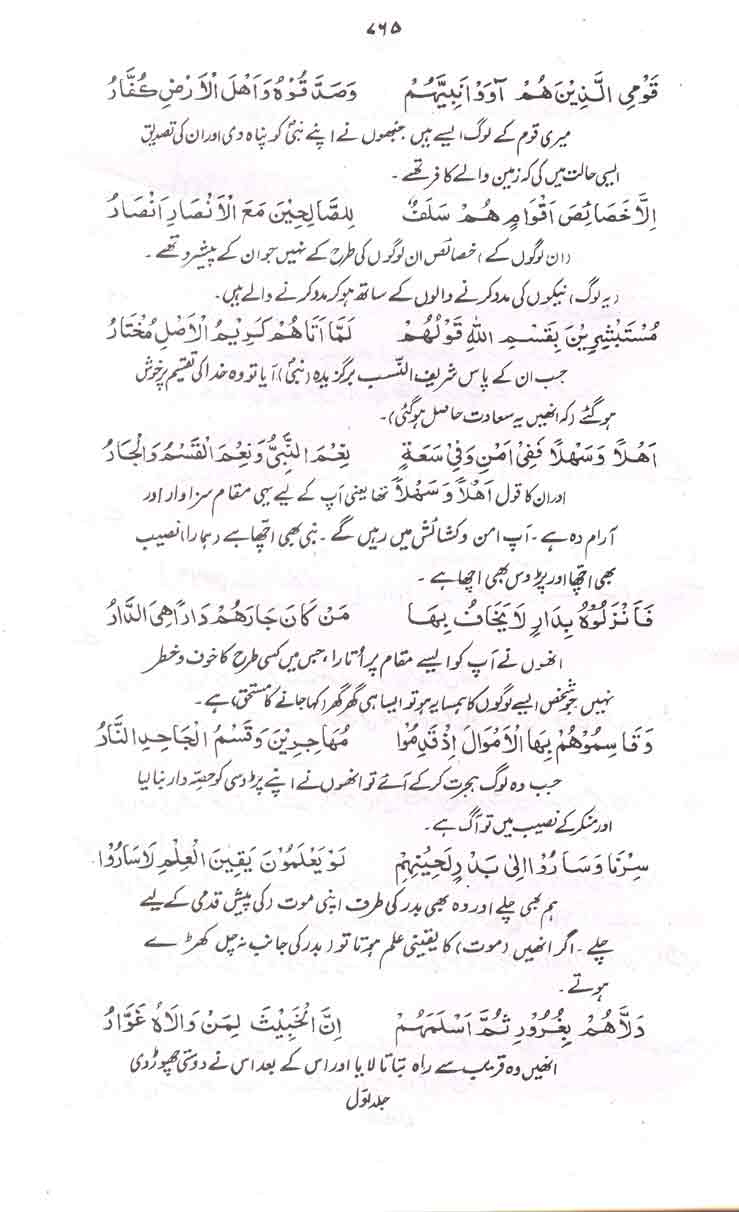 ۷۶۵
قَوْمِي الَّذِيْنَ هُمْ آوَوْا نَبِيَّهُمْ وَصَدَّقُوْهُ وَاَهْلُ الْاَرْضِ كُفَّارُ
میری قوم کے لوگ ایسے ہیں جنھوں نے اپنے نبیؐ کو پناہ دی اور ان کی تصدیق
ایسی حالت میں کی کہ زمین والے کافر تھے ۔
اِلَّا خَصَائِصَ اَقْوَامٍ هُمْ سَلَفٌ لِلصَّالِحِيْنَ مَعَ الْاَنْصَارِ اَنْصَارُ
(ان لوگوں کے) خصائص ان لوگوں کی طرح کے نہیں جو ان کے پیشرو تھے ۔
(یہ لوگ) نیکوں کی مدد کرنے والوں کے ساتھ ہو کر مدد کرنے والے ہیں۔
مُسْتَبْشِرِيْنَ بِقَسْمِ اللهِ قَوْلُهُمْ لَمَّا اَتَاهُمْ كَرِيْمُ الْاَصْلِ مُخْتَارُ
جب ان کے پاس شریف النّسب برگزیدہ (نبیؐ) آیا تو وہ خدا کی تقسیم پر خوش
ہو گئے (کہ انھیں یہ سعادت حاصل ہو گئی)۔
اَهْلًا وَسَهْلًا فَفِيْ اَمْنٍ وَفِيْ سَعَةٍ نِعْمَ النَّبِيُّ وَنِعْمَ الْقَسْمُ وَالْجَارُ
اور ان کا قول اَهْلًا وَسَهْلًا تھا یعنی آپ کے لیے یہی مقام سزاوار اور
آرام دہ ہے ۔ آپ امن و کشائش میں رہیں گے ۔ نبی بھی اچھا ہے (ہمارا) نصیب
بھی اچھا اور پڑوس بھی اچھا ہے ۔
فَاَنْزَلُوْهُ بِدَارٍ لَا يَخَافُ بِهَا مَنْ كَانَ جَارَهُمْ دَارًا هِيَ الدَّارُ
انھوں نے آپ کو ایسے مقام پر اُتارا، جس میں کسی طرح کا خوف و خطر
نہیں جو شخص ایسے لوگوں کا ہمسایہ ہو تو ایسا ہی گھر گھر (کہا جانے کا مستحق) ہے۔
وَقَاسِمُوْهُمْ بِهَا الْاَمْوَالَ اِذْ قَدِمُوْا مُهَاجِرِيْنَ وَقَسْمُ الْجَاحِدِ النَّارُ
جب وہ لوگ ہجرت کر کے آئے تو انھوں نے اپنے پڑوسی کو حصّہ دار بنا لیا
اور منکر کے نصیب میں تو آگ ہے۔
سِرْنَا وَسَارُوْا اِلٰى بَدْرٍ لِحَيْنِهِمْ لَوْ يَعْلَمُوْنَ يَقِيْنَ الْعِلْمِ لَا سَارُوْا
ہم بھی چلے اور وہ بھی بدر کی طرف اپنی موت (کی پیش قدمی کے لیے
چلے ۔ اگر انھیں (موت) کا یقینی علم ہوتا تو (بدر کی جانب) نہ چل کھڑے
ہوتے ۔
دَلَّاهُمْ بِغُرُوْرٍ ثُمَّ اَسْلَمَهُمْ اِنَّ الْخَبِيْثَ لِمَنْ وَالَاهُ غَرَّارُ
انھیں وہ فریب سے راہ بتاتا لایا اور اس کے بعد اس نے دوستی چھوڑ دی
جلد اوّل